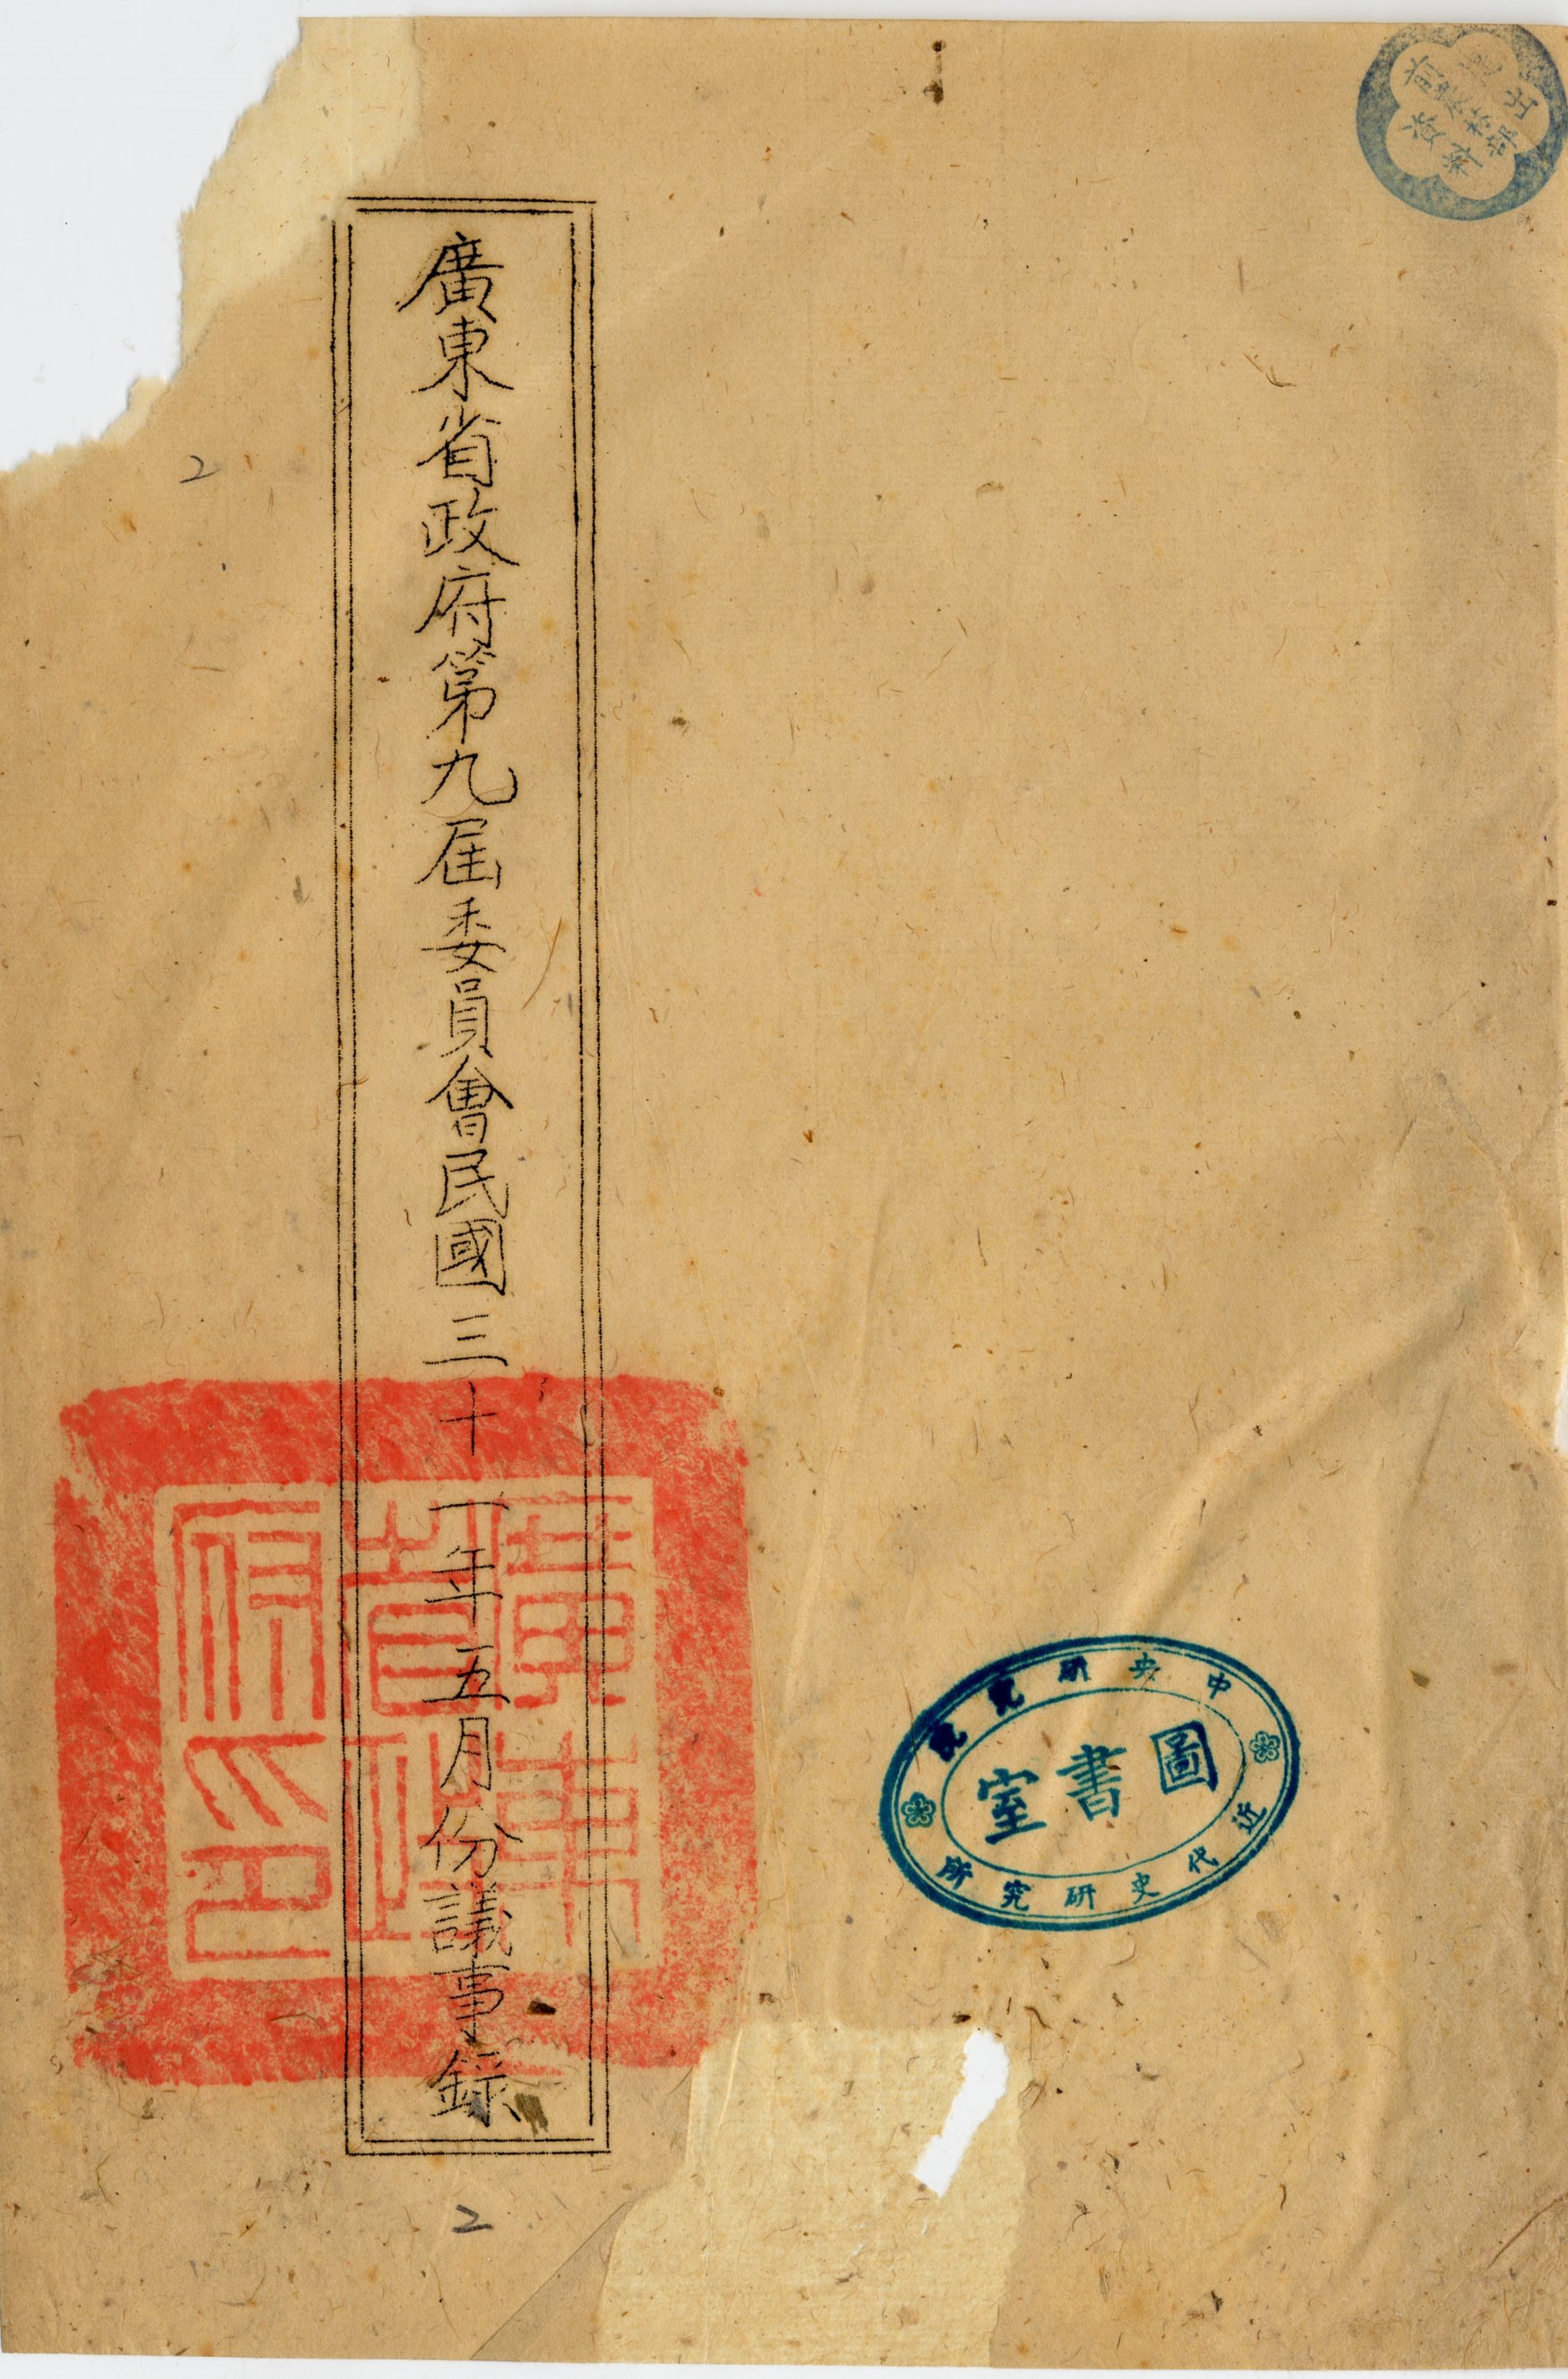 廣東省政府第九屆委員會民國三十一年五月份議事錄
廣東省政府印
中央研究院
圖書室
近代史研究所
2
2